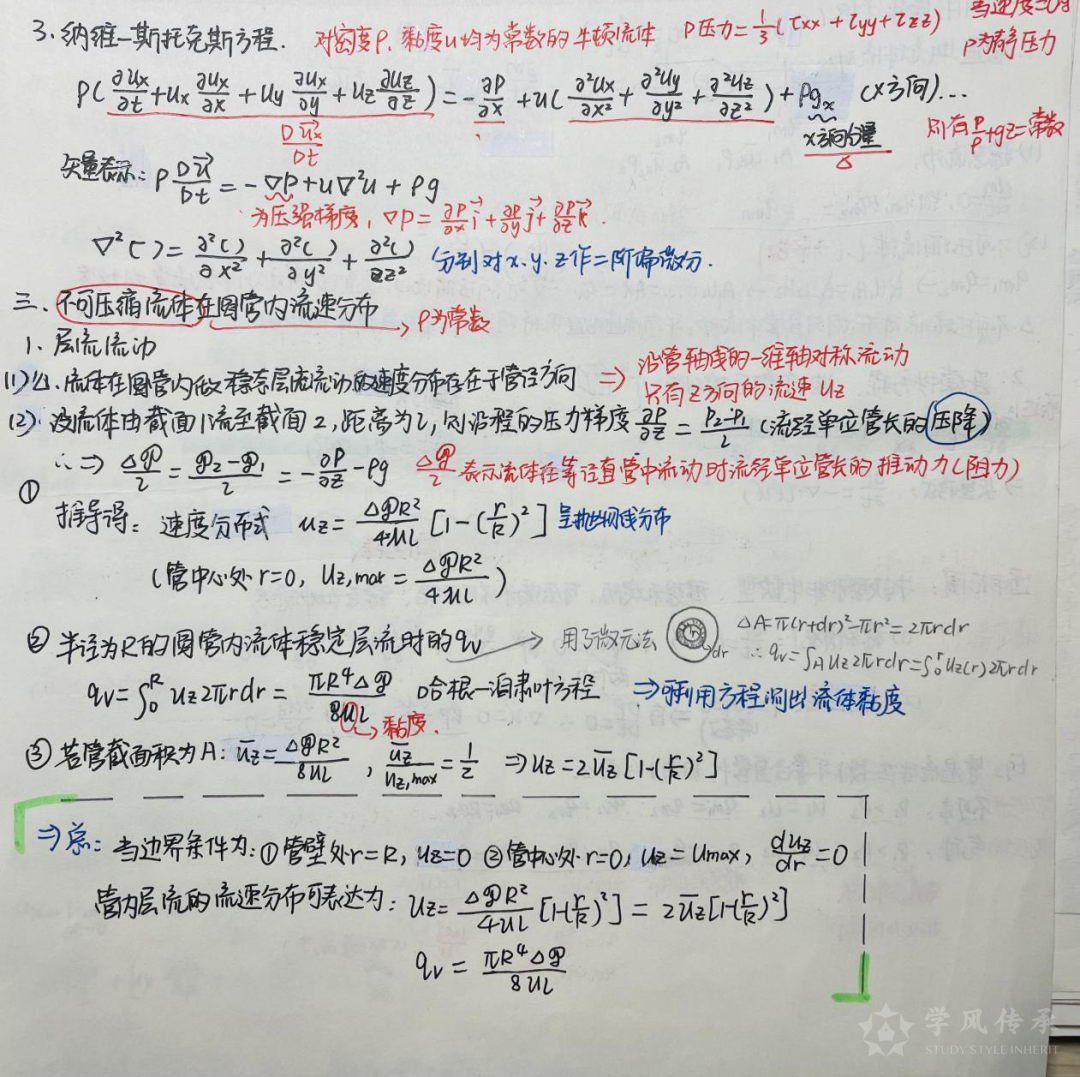 3. 纳维-斯托克斯方程. 对密度ρ、黏度u均为常数的牛顿流体 P压力=1/3(τxx+τyy+τzz) 当速度=0时
P为静压力
ρ(∂ux/∂t+ux ∂ux/∂x+uy ∂ux/∂y+uz ∂uz/∂z)=-∂P/∂x+u(∂²ux/∂x²+∂²uy/∂y²+∂²uz/∂z²)+ρgx (x方向)...
Dux/Dt x方向分量 则有P/ρ+gz=常数
矢量表示: ρ Du/Dt=-∇P+u∇²u+ρg
为压强梯度, ∇P=∂P/∂x i+∂P/∂y j+∂P/∂z k.
∇²( )=∂²( )/∂x²+∂²( )/∂y²+∂²( )/∂z² 分别对x.y.z作二阶偏微分.
三. 不可压缩流体在圆管内流速分布 → ρ为常数
1. 层流流动
(1)公. 流体在圆管内做稳态层流流动的速度分布存在于管径方向 ⇒ 沿管轴线的一维轴对称流动
只有z方向的流速uz
(2). 设流体由截面1流至截面2,距离为l,则沿程的压力梯度∂P/∂z=(P2-P1)/l (流经单位管长的压降)
∴⇒ Δ𝒫/l=(𝒫2-𝒫1)/l=-∂P/∂z-ρg Δ𝒫/l表示流体在等径直管中流动时流经单位管长的推动力(阻力)
① 推导得: 速度分布式 uz=Δ𝒫R²/4uL[1-(r/R)²] 呈抛物线分布
(管中心处r=0, uz,max=Δ𝒫R²/4uL)
② 半径为R的圆管内流体稳定层流时的qv → 用了微元法 dr ΔA=π(r+dr)²-πr²=2πrdr
∴qv=∫A uz2πrdr=∫0^r uz(r)2πrdr
qv=∫0^R uz2πrdr=πR⁴Δ𝒫/8uL 哈根-泊肃叶方程 ⇒可利用方程测出流体黏度
→黏度.
③ 若管截面积为A: ūz=Δ𝒫R²/8uL, ūz/uz,max=1/2 ⇒uz=2ūz[1-(r/R)²]
⇒总: 当边界条件为: ①管壁处r=R, uz=0 ②管中心处r=0, uz=umax, duz/dr=0
管内层流的流速分布可表达为: uz=Δ𝒫R²/4uL[1-(r/R)²]=2ūz[1-(r/R)²]
qv=πR⁴Δ𝒫/8uL
学风传承
STUDY STYLE INHERIT